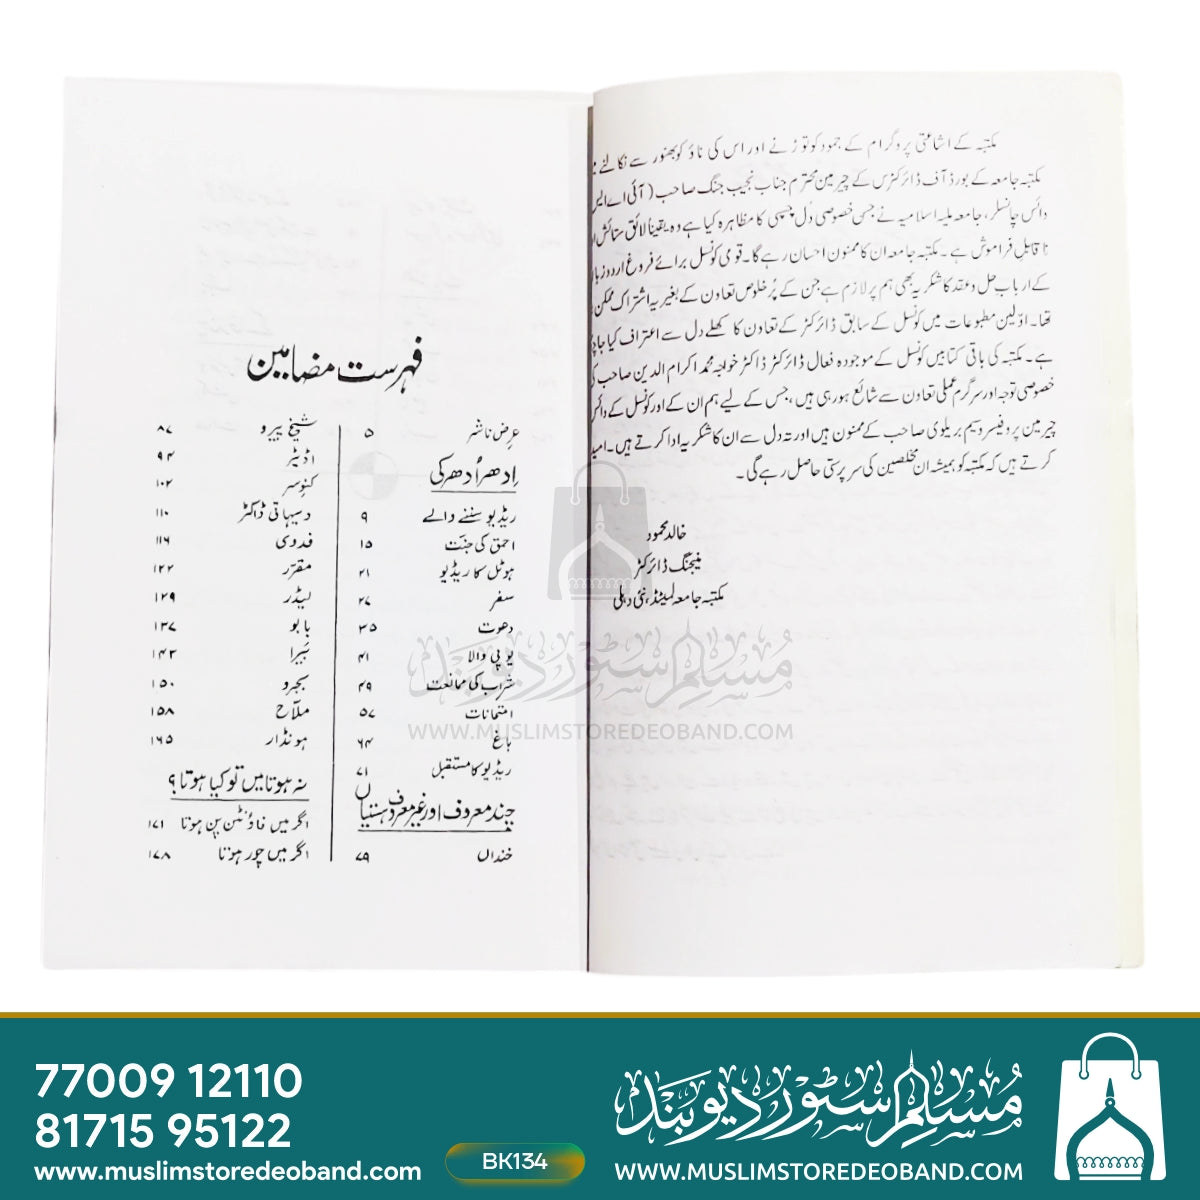 مکتبہ کے اشاعتی پروگرام کے جمود کو توڑنے اور اس کی ناؤ کو بھنور سے نکالنے میں
مکتبہ جامعہ کے بورڈ آف ڈائرکٹرس کے چیرمین محترم جناب نجیب جنگ صاحب (آئی اے ایس
وائس چانسلر، جامعہ ملیہ اسلامیہ نے جس خصوصی دل چسپی کا مظاہرہ کیا ہے وہ یقیناً لائق ستائش ا
ناقابل فراموش ہے۔ مکتبہ جامعہ ان کا ممنون احسان رہے گا۔ قومی کونسل برائے فروغ اردو زبا
کے ارباب حل و عقد کا شکریہ بھی ہم پر لازم ہے جن کے پُر خلوص تعاون کے بغیر یہ اشتراک ممکن
تھا۔ اوّلین مطبوعات میں کونسل کے سابق ڈائرکٹر کے تعاون کا کھلے دل سے اعتراف کیا جاچکا
ہے۔ مکتبہ کی باقی کتابیں کونسل کے موجودہ فعال ڈائرکٹر ڈاکٹر خواجہ محمد اکرام الدین صاحب کی
خصوصی توجہ اور سرگرم عملی تعاون سے شائع ہورہی ہیں، جس کے لیے ہم ان کے اور کونسل کے وائس
چیرمین پروفیسر وسیم بریلوی صاحب کے ممنون ہیں اور تہ دل سے ان کا شکریہ ادا کرتے ہیں۔ امید
کرتے ہیں کہ مکتبہ کو ہمیشہ ان مخلصین کی سرپرستی حاصل رہے گی۔
خالد محمود
منیجنگ ڈائرکٹر
مکتبہ جامعہ لمیٹڈ، نئی دہلی
فہرست مضامین
عرض ناشر ۵
اِدھر اُدھر کی
ریڈیو سننے والے ۹
احمق کی جنّت ۱۵
ہوٹل کا ریڈیو ۲۱
سفر ۲۷
دعوت ۳۵
یو پی والا ۴۱
شراب کی ممانعت ۴۹
امتحانات ۵۷
باغ ۶۴
ریڈیو کا مستقبل ۷۱
چند معروف اور غیر معروف ہستیاں
خنداں ۷۹
شیخ پیرو ۸۷
اڈیٹر ۹۴
کنوسر ۱۰۲
دیہاتی ڈاکٹر ۱۱۰
فدوی ۱۱۶
مقرّر ۱۲۲
لیڈر ۱۲۹
بابو ۱۳۷
بَیرا ۱۴۳
بجرو ۱۵۰
ملّاح ۱۵۸
ہونڈار ۱۶۵
نہ ہوتا میں تو کیا ہوتا؟
اگر میں فاؤنٹن پن ہوتا ۱۷۱
اگر میں چور ہوتا ۱۷۸
مسلم سٹور دیوبند
WWW.MUSLIMSTOREDEOBAND.COM
77009 12110
81715 95122
www.muslimstoredeoband.com
BK134
مسلم سٹور دیوبند
WWW.MUSLIMSTOREDEOBAND.COM